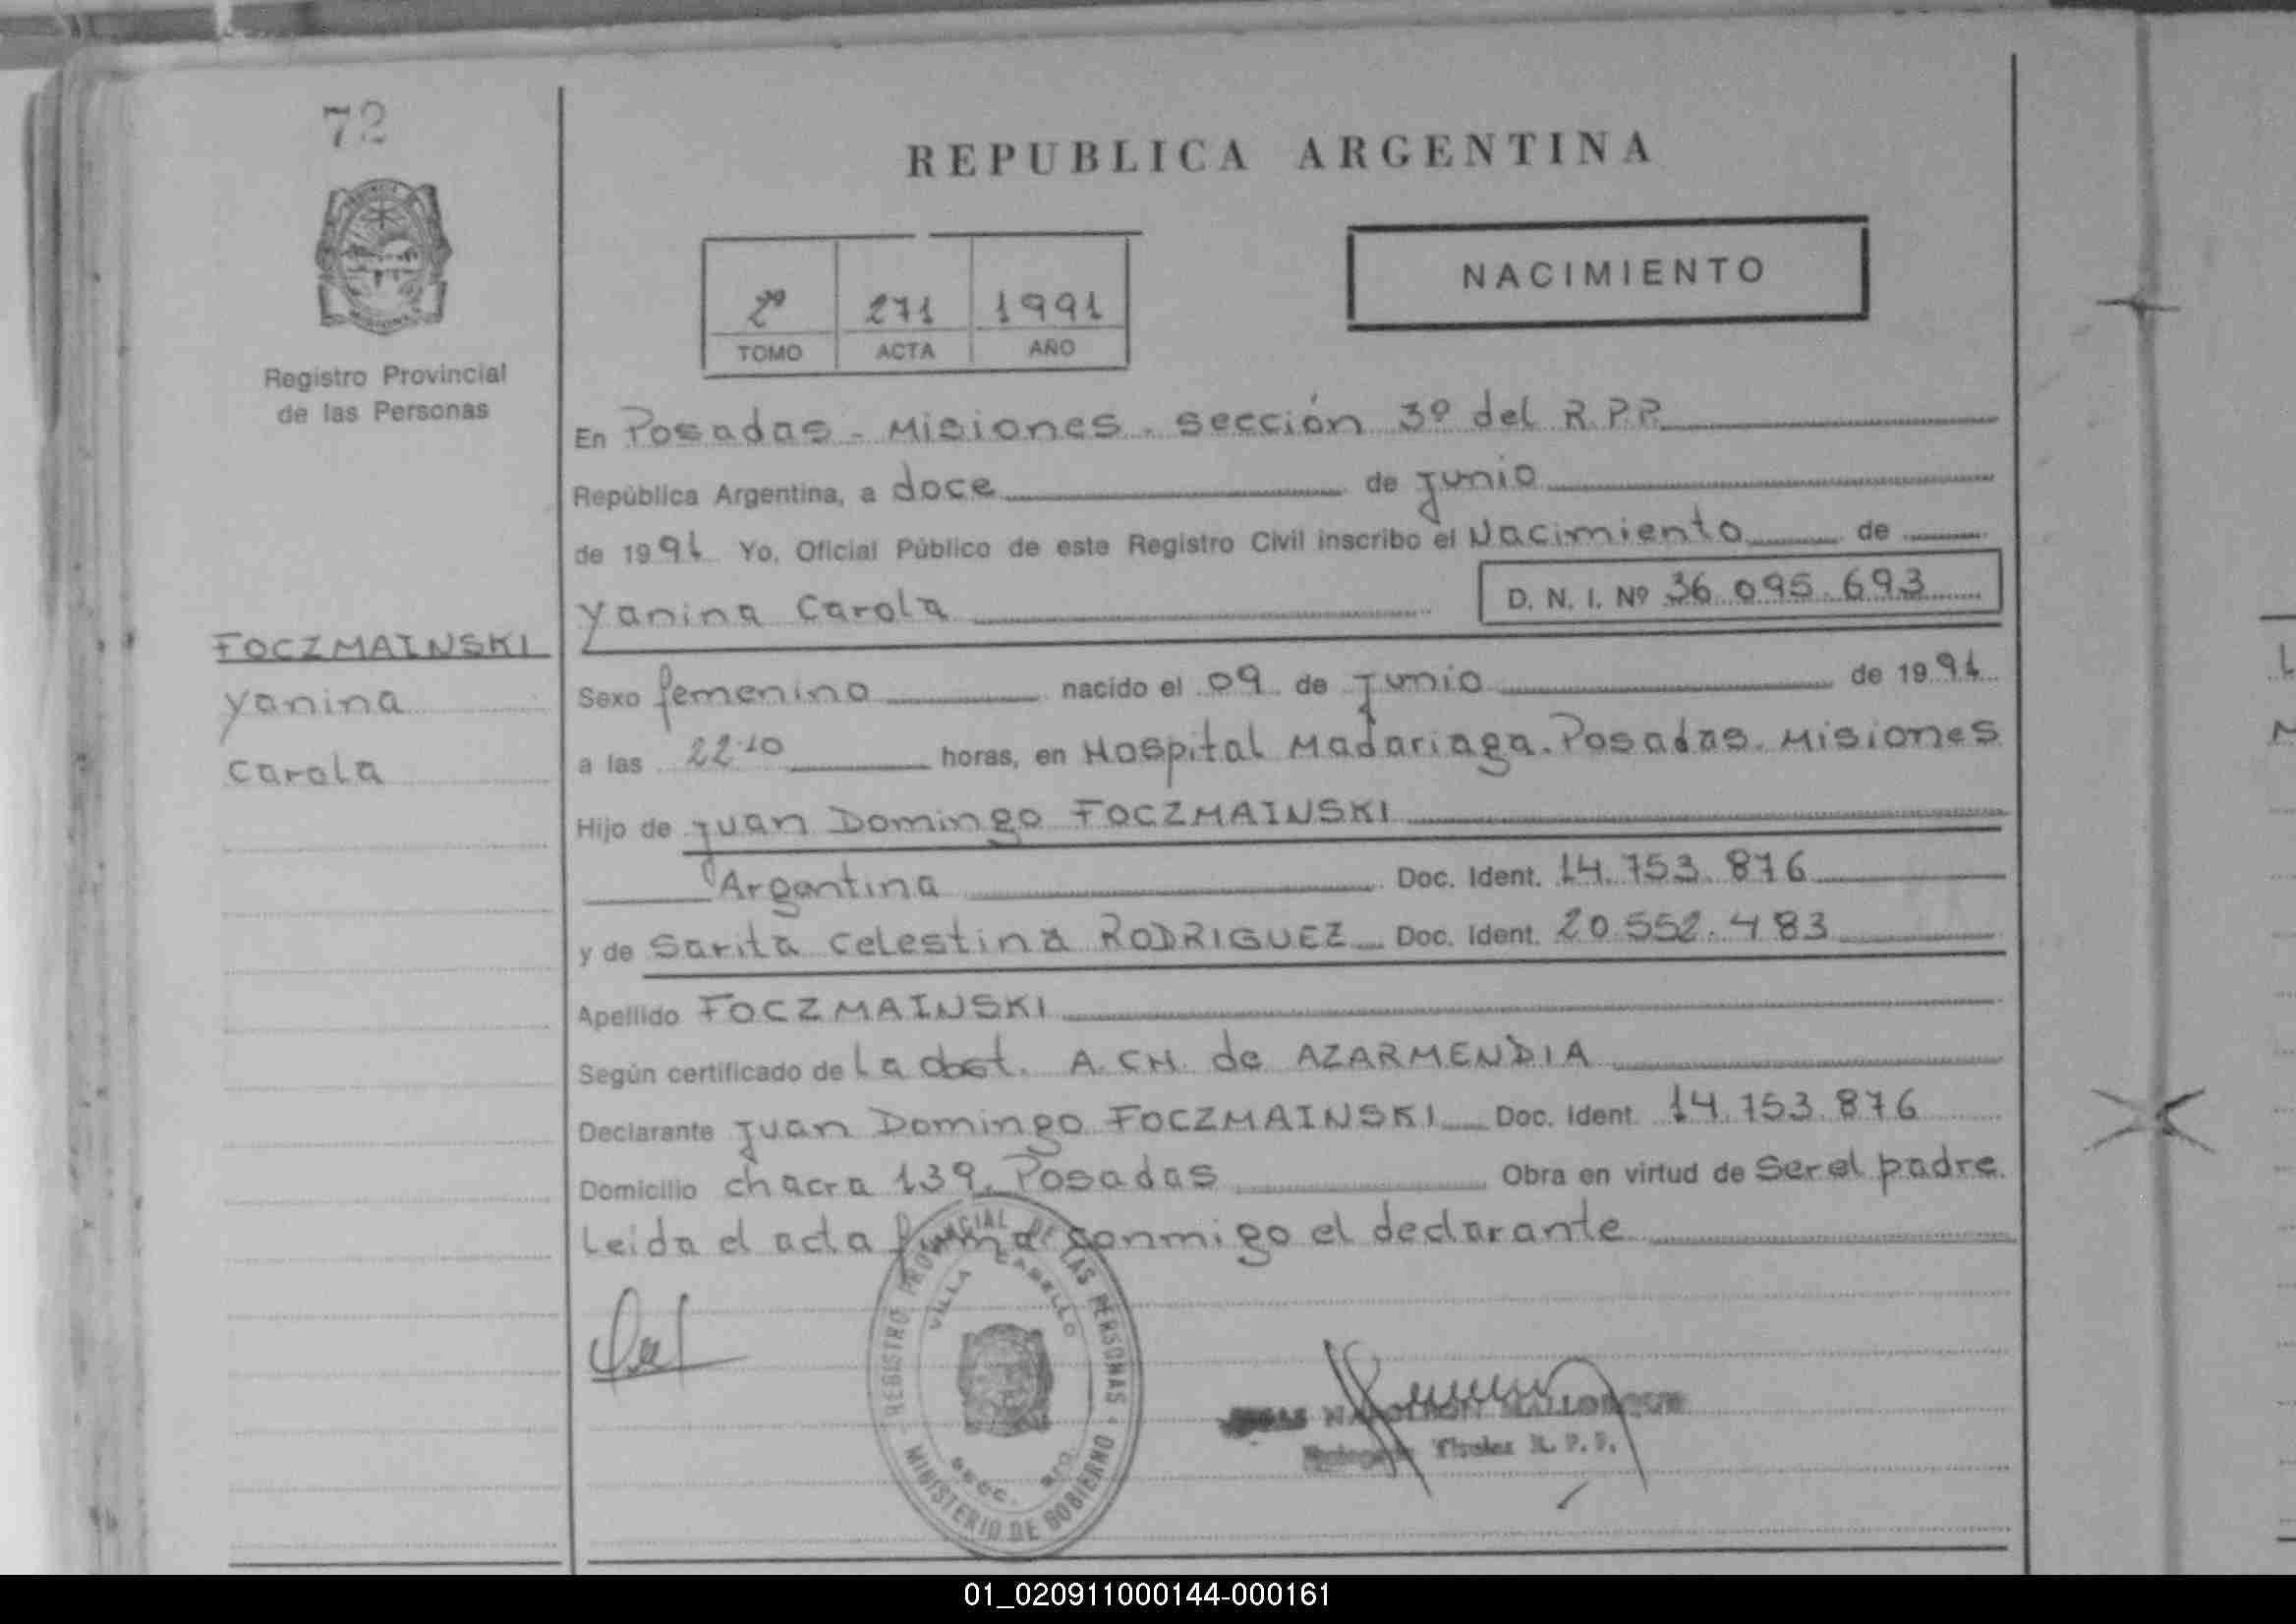 72
REPUBLICA ARGENTINA
NACIMIENTO
2º 271 1991
TOMO ACTA AÑO
Registro Provincial
de las Personas
En Posadas - Misiones - sección 3º del R.P.P.
República Argentina, a doce de junio
de 1991 Yo, Oficial Público de este Registro Civil inscribo el Nacimiento de
Yanina Carola D. N. I. Nº 36.095.693
FOCZMAINSKI
Yanina
Carola
Sexo femenino nacido el 09 de junio de 1991
a las 22.10 horas, en Hospital Madariaga. Posadas. Misiones
Hijo de Juan Domingo FOCZMAINSKI
Argentina Doc. Ident. 14.753.876
y de Sarita Celestina RODRIGUEZ Doc. Ident. 20.552.483
Apellido FOCZMAINSKI
Según certificado de La obst. A. CH. de AZARMENDIA
Declarante Juan Domingo FOCZMAINSKI Doc. Ident. 14.753.876
Domicilio chacra 139. Posadas Obra en virtud de Ser el padre.
Leida el acta firma conmigo el declarante
REGISTRO PROVINCIAL DE LAS PERSONAS
VILLA CABELLO
SECC. 3ra.
MINISTERIO DE GOBIERNO
NAPOLEON MALLORQUIN
Titular R. P. P.
01_020911000144-000161